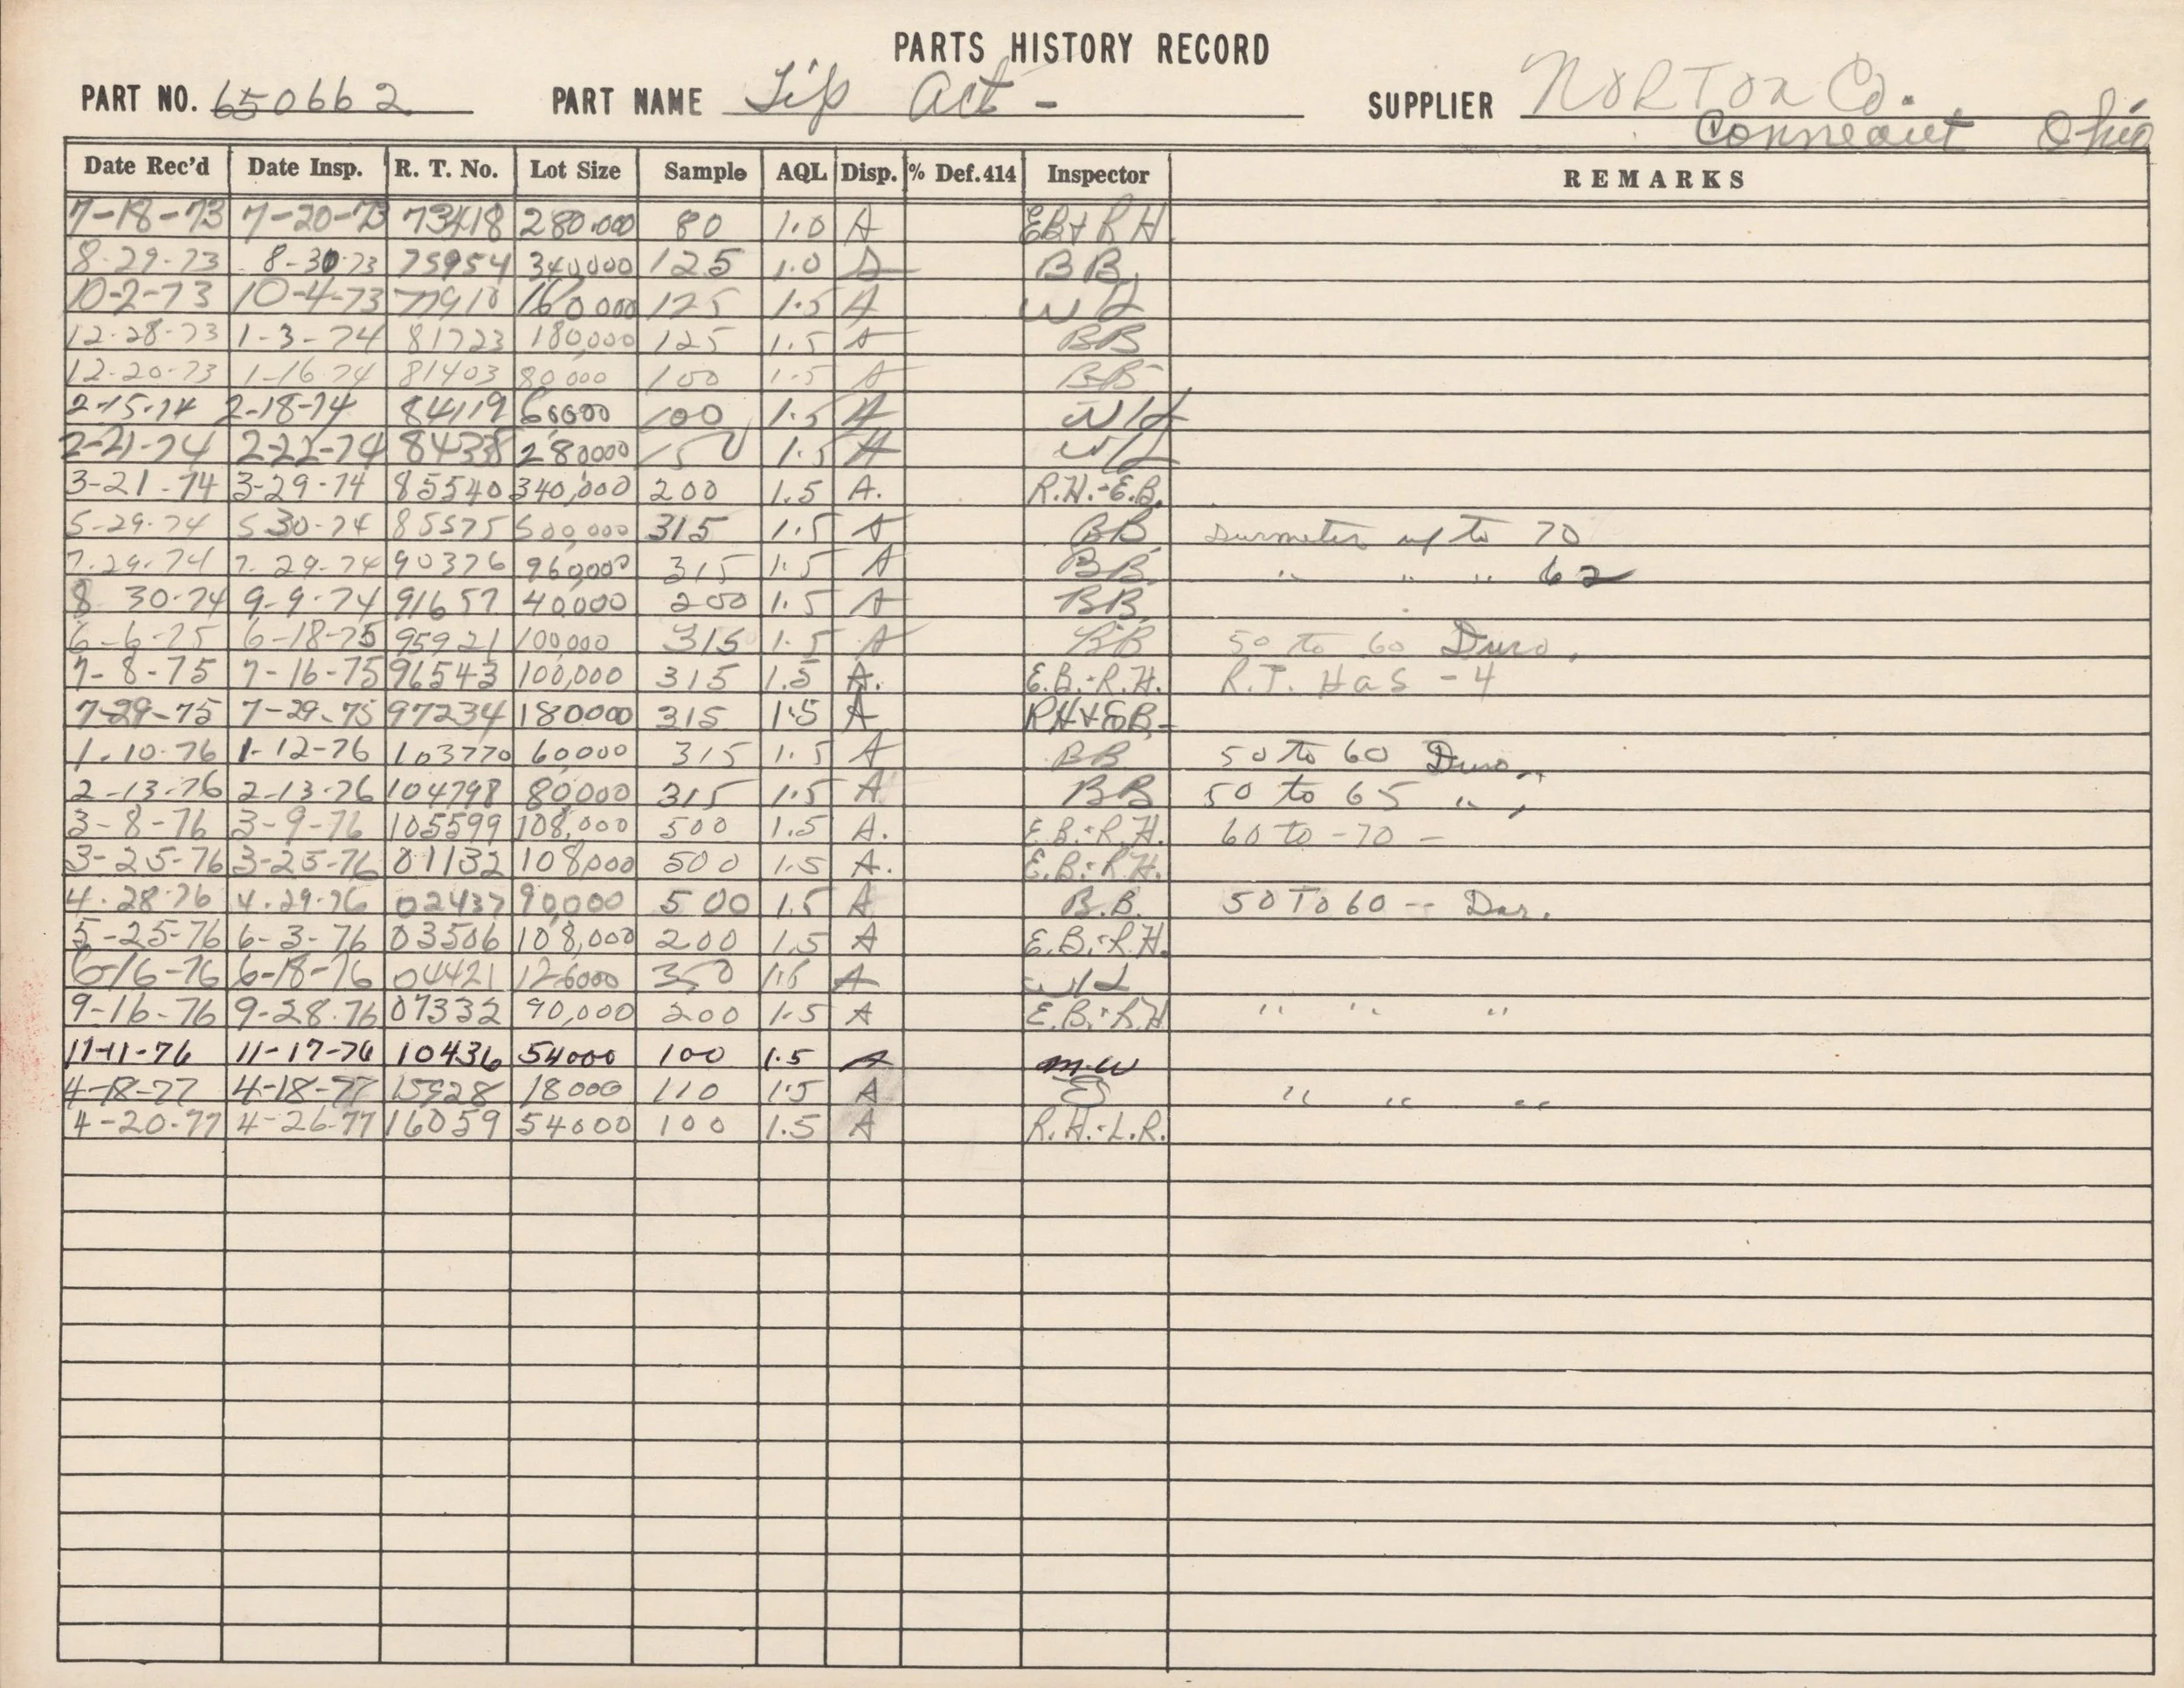 PARTS HISTORY RECORD
PART NO. 650662 PART NAME Tip Act - SUPPLIER Norton Co.
Conneaut Ohio
Date Rec'd Date Insp. R. T. No. Lot Size Sample AQL Disp. % Def. 414 Inspector REMARKS
7-18-73 7-20-73 73418 280,000 80 1.0 A EB+RH
8-29-73 8-30-73 75954 340,000 125 1.0 A BB
10-2-73 10-4-73 77910 160000 125 1.5 A WL
12-28-73 1-3-74 81723 180,000 125 1.5 A BB
12-20-73 1-16-74 81403 80000 100 1.5 A BB
2-15-74 2-18-74 84119 60000 100 1.5 A WL
2-21-74 2-22-74 280000 150 1.5 A WL
3-21-74 3-29-74 85540 340,000 200 1.5 A. R.H.-E.B.
5-29-74 5 30-74 85575 500,000 315 1.5 A BB Durmeter up to 70
7-29-74 7-29-74 90376 960,000 315 1.5 A BB " " " 62
8 30-74 9-9-74 91657 40,000 200 1.5 A BB
6-6-75 6-18-75 95921 100,000 315 1.5 A BB 50 to 60 Duro.
7-8-75 7-16-75 96543 100,000 315 1.5 A. E.B.-R.H. R.T. Has -4
7-29-75 7-29-75 97234 180000 315 1.5 A RH+EB-
1-10-76 1-12-76 103770 60,000 315 1.5 A BB 50 to 60 Duro.
2-13-76 2-13-76 104798 80,000 315 1.5 A BB 50 to 65 "
3-8-76 3-9-76 105599 108,000 500 1.5 A. E.B.-R.H. 60 to -70 -
3-25-76 3-25-76 01132 108,000 500 1.5 A. E.B.-R.H.
4-28-76 4-29-76 02437 90,000 500 1.5 A B.B. 50 To 60 -- Dur.
5-25-76 6-3-76 03506 108,000 200 1.5 A E.B.-R.H.
6-16-76 6-18-76 04421 126000 350 A WL
9-16-76 9-28-76 07332 90,000 200 1.5 A E.B.-R.H " " "
11-11-76 11-17-76 10436 54000 100 1.5 A M.W
4-18-77 4-18-77 15928 18000 110 1.5 A " " "
4-20-77 4-26-77 16059 54000 100 1.5 A R.H.-L.R.